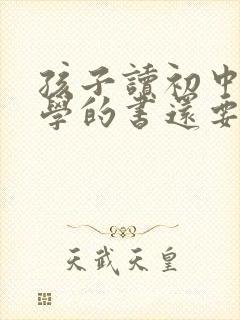 孩子讀初中
學的書還要
天武天皇